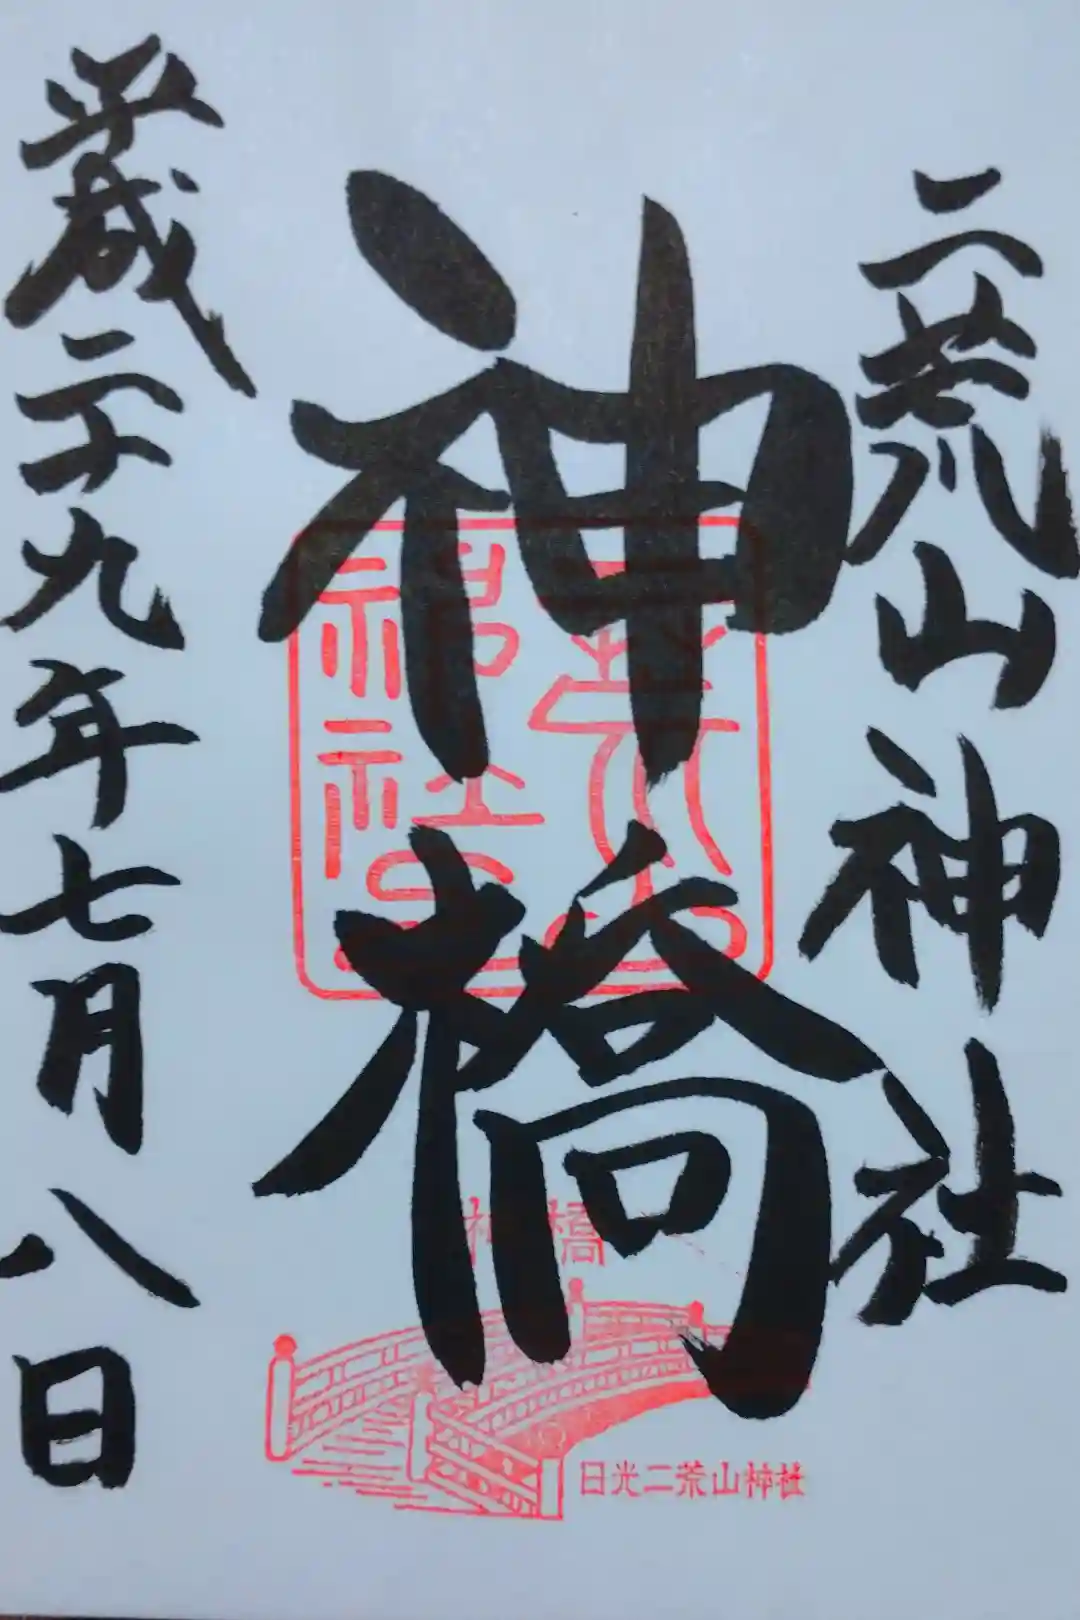 二荒山神社
神橋
平成二十九年七月八日
神橋
日光二荒山神社